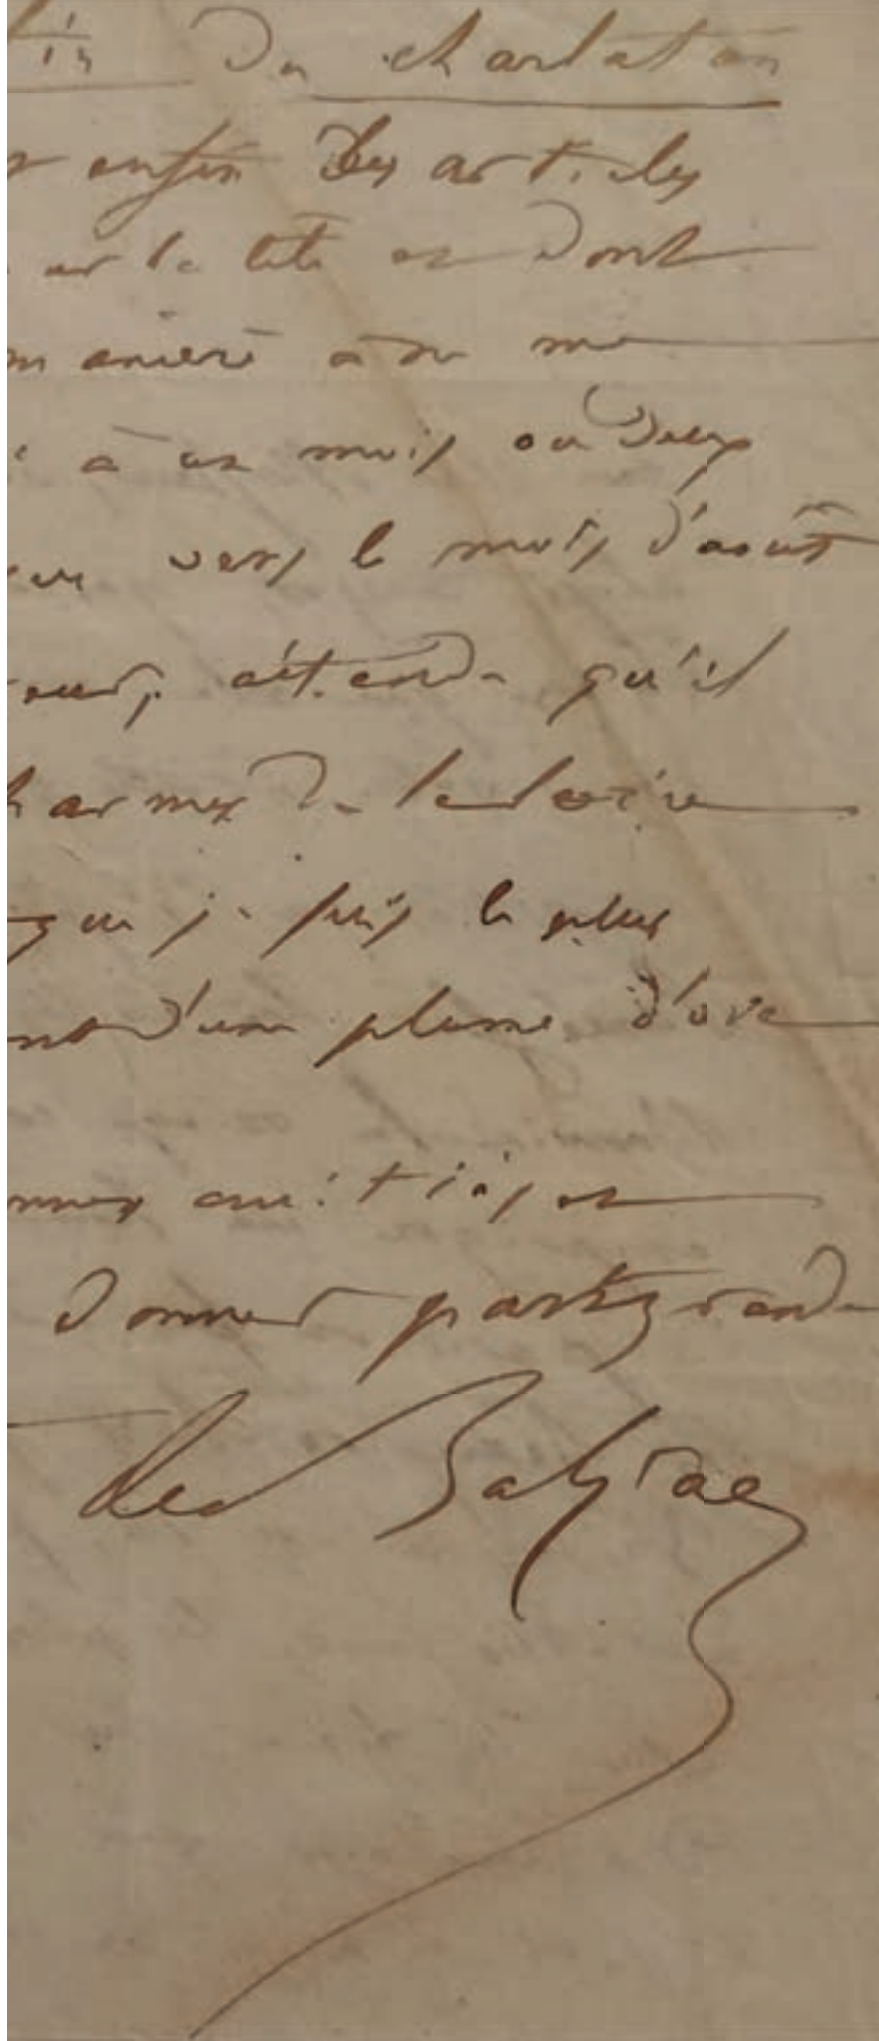 du charlatan
enfin des articles
sur la tête et dont
manière à ne me
à un mois ou deux
vers le mois d'août
attendu qu'il
charmes de
que je suis le plus
d'une plume d'oie
amitiés et
donner partgrand
de Balzac